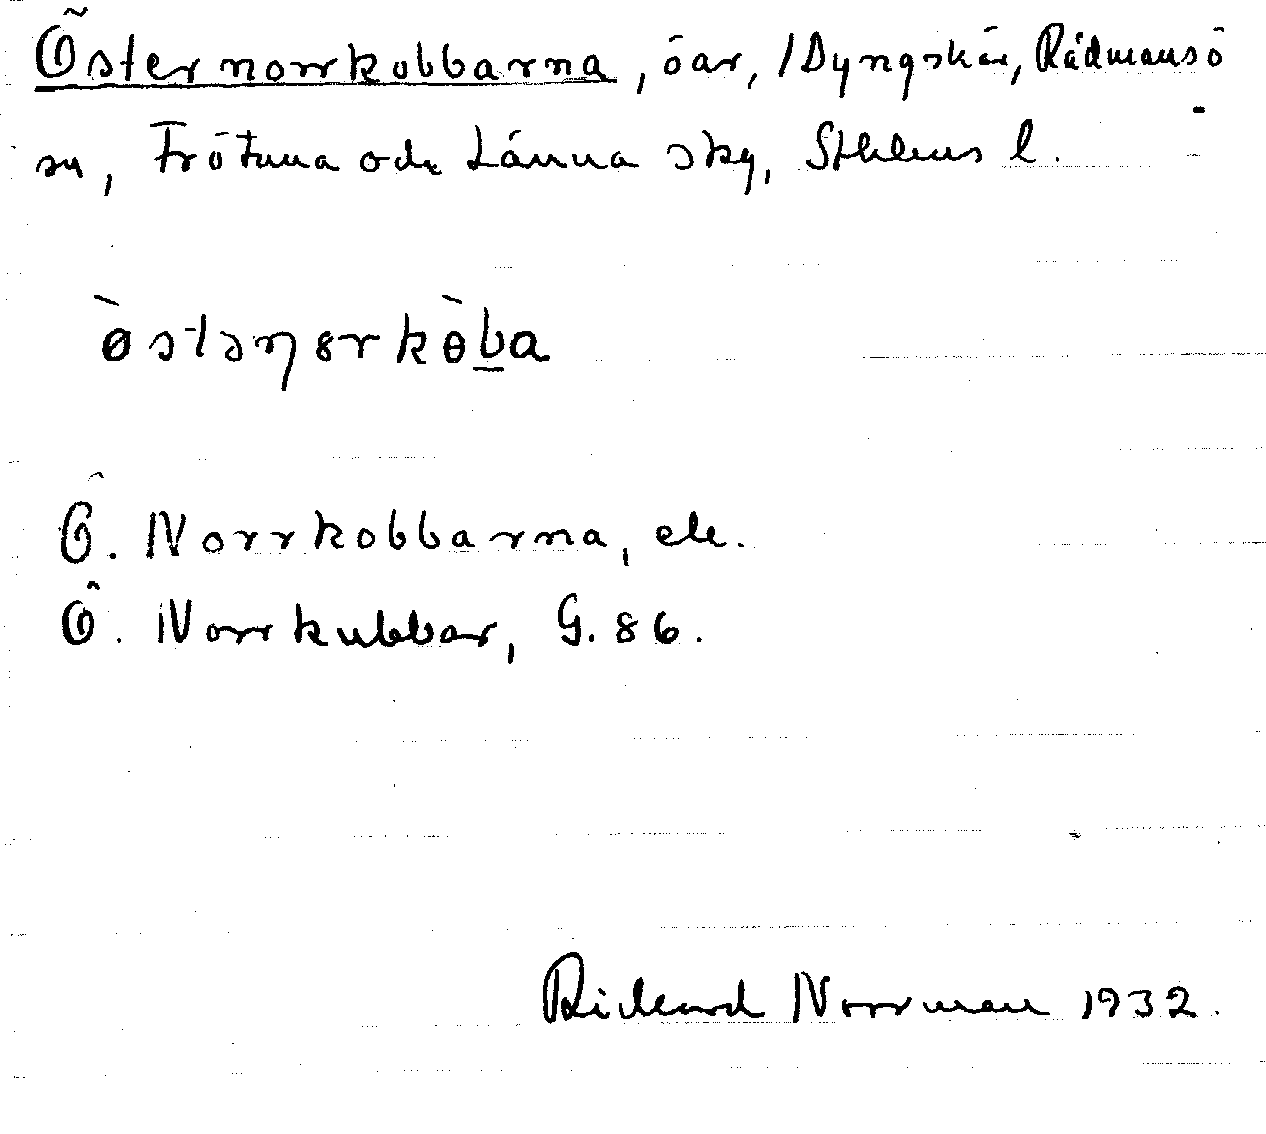 Östernorrkobbarna, öar, /Dyngskär, Rådmansö
sn, Frötuna och Länna sky, Sthlms l.
ò̀stəŋɞrkɵ̀b̲a
Ö. Norrkobbarna, ek.
Ö. Norrkubbar, G. 86.
Rickard Norrman 1932.